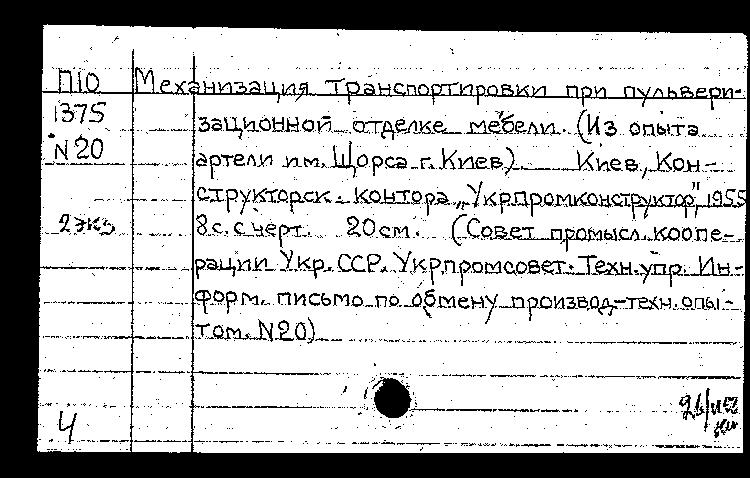 П10 Механизация транспортировки при пульвери-
1375 зационной отделке мебели. (Из опыта
N20 артели им. Щорса г. Киев). Киев, Кон-
структорск. контора „Укрпромконструктор", 1955
2 экз 8 с. с черт. 20 см. (Совет промысл. коопе-
рации Укр. ССР. Укрпромсовет. Техн. упр. Ин-
форм. письмо по обмену производ.-техн. опы-
том. N20)
Ч